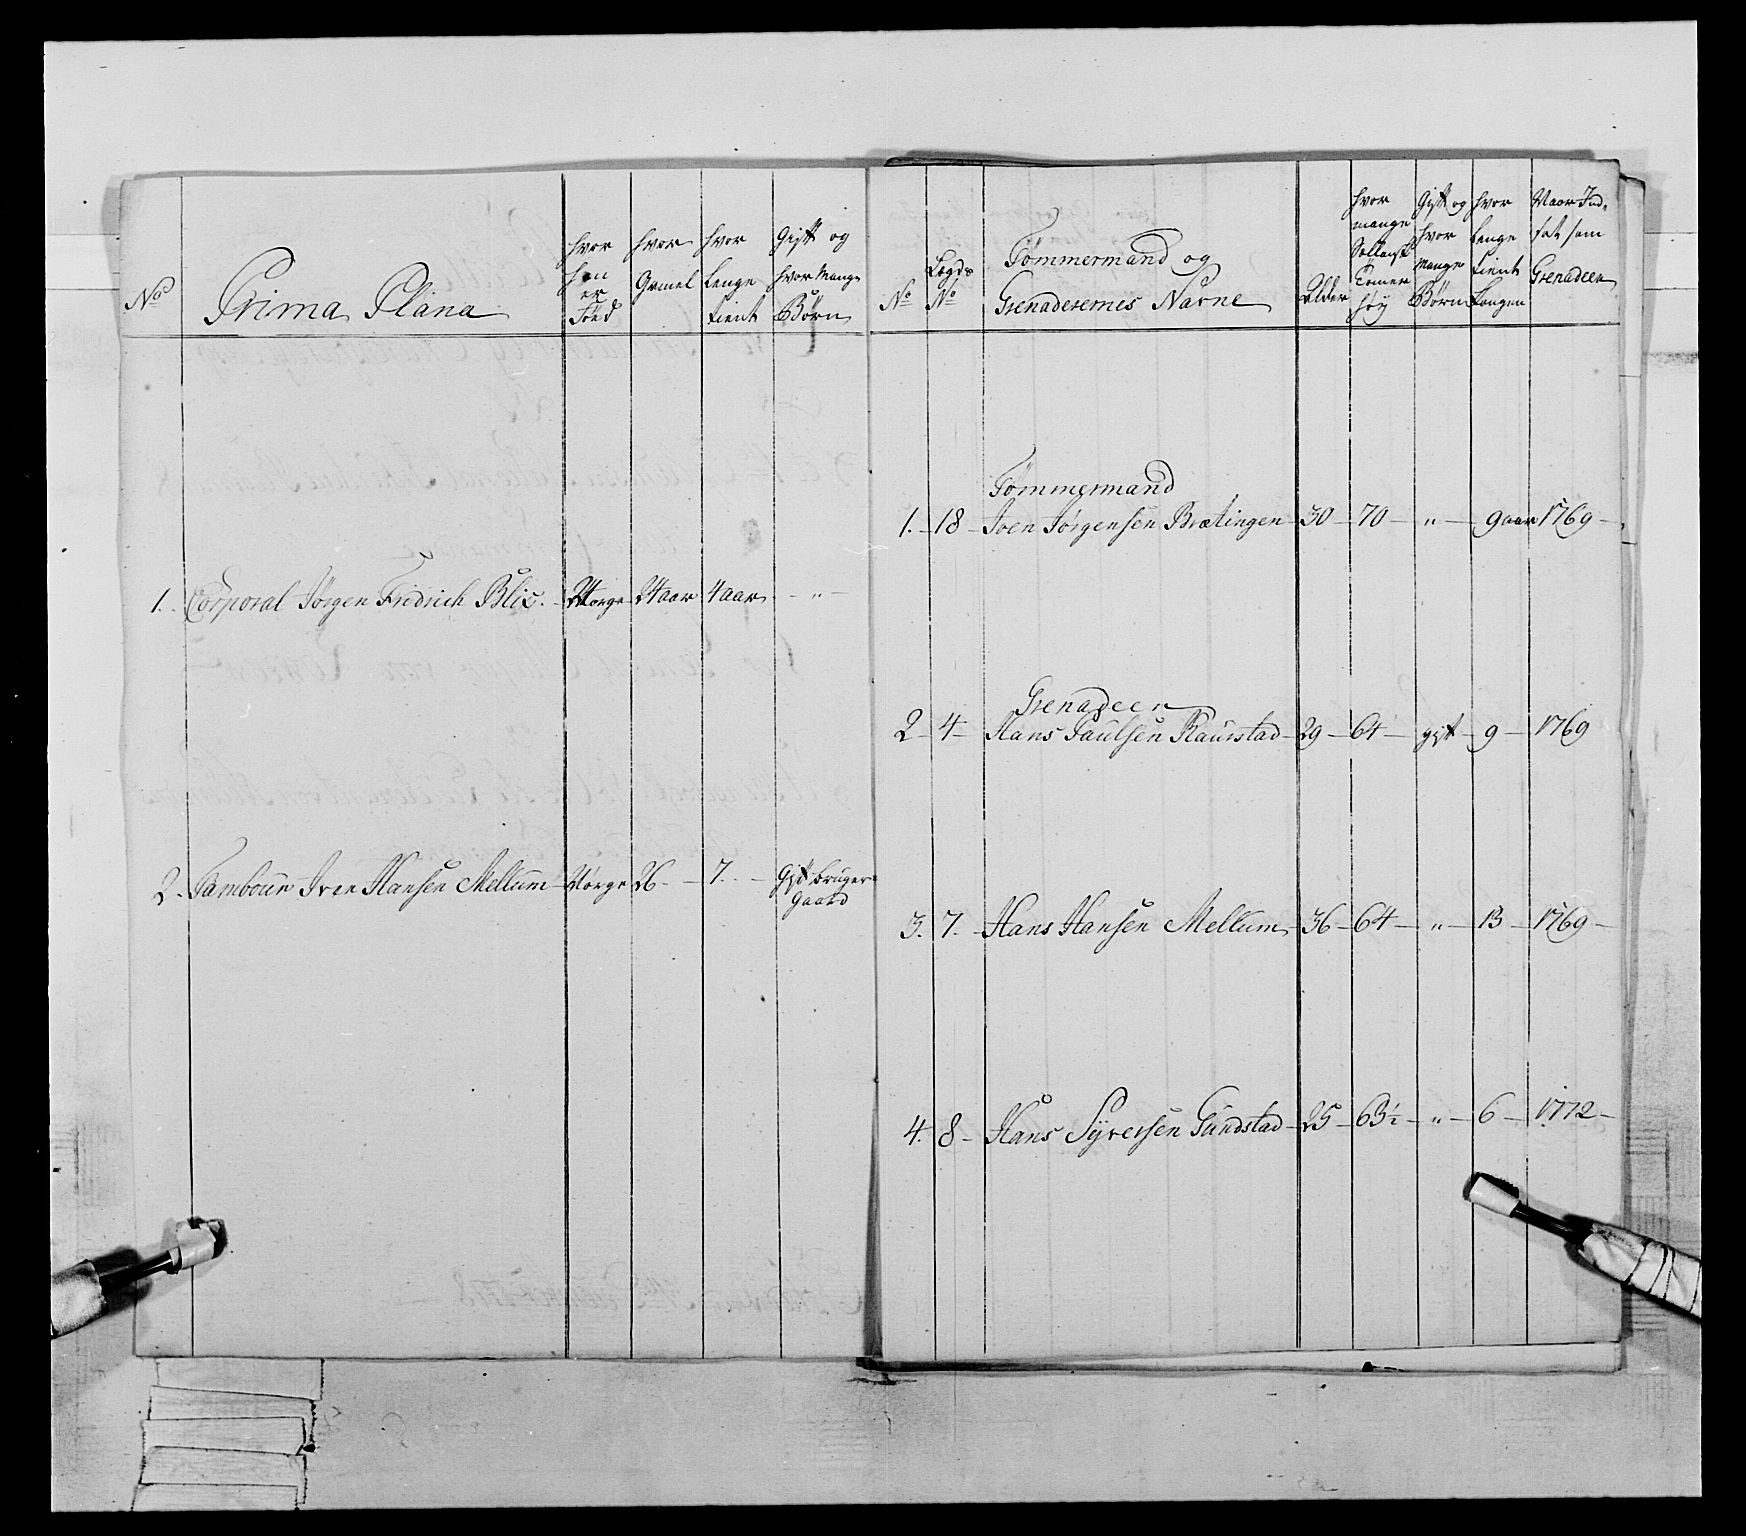 No
Prima Plana
hvor
han
er
Föed
hvor
Gamel
hvor
Lenge
tient
Gift og
hvor Mange
Børn
1. Corporal Jørgen Fredrich Blix. Norge 24 aar 4 aar "
2. Tambour Iver Hansen Mellum Norge 26 7. Gift bruger
Gaard
No
Lægds
No
Tømmermand og
Grenaderernes Navne
Alder
hvor
mange
Tomer
høy
Gift og
hvor
Mange
Børn
hvor
Lenge
tient
Kongen
Naar Ind-
sat som
Grenadeer
Tømmermand
1. 18 Joen Jörgensen Brætingen 30 70 " 9 aar 1769
Grenadeer
2 4 Hans Paulsen Raurstad 29 64 gift 9 1769
3. 7. Hans Hansen Mellum 36 64 " 13 1769
4. 8 Hans Syversen Gundstad 25 63½ " 6 1772